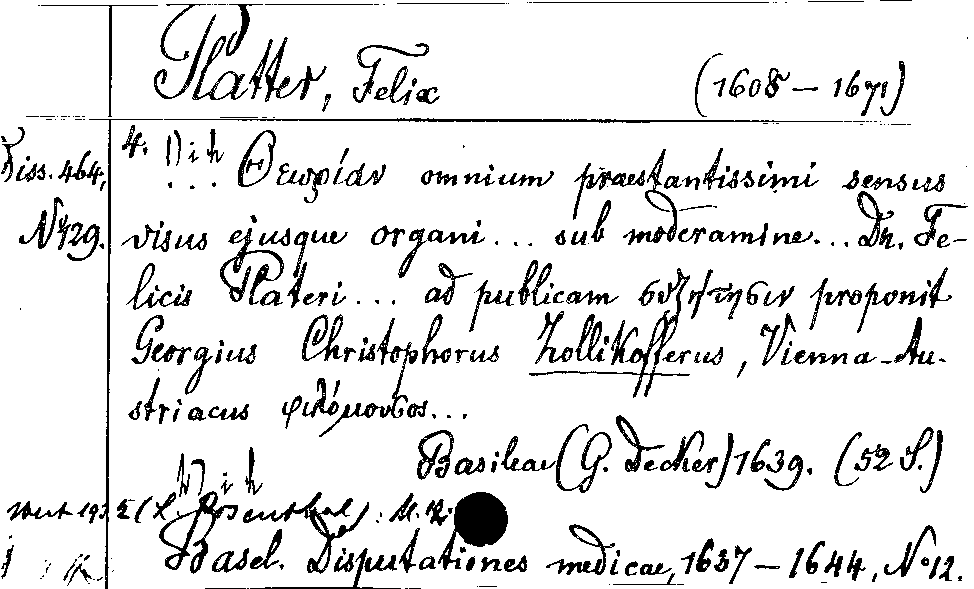 Platter, Felix (1605 – 1671)
Diss. 464, 4.
... Θεωρίαν omnium praestantissimi sensus
No 129. visus ejusque organi... sub moderamine... Dn. Fe-
licis Plateri... ad publicam συζήτησιν proponit
Georgius Christophorus Zollikofferus, Vienna-Au-
striacus φιλόμουσος...
Basileae (G. Decker) 1639. (52 S.)
Wert 193 (L. Rosenthal): M. 12
Basel. Disputationes medicae, 1637 – 1644, No 12.